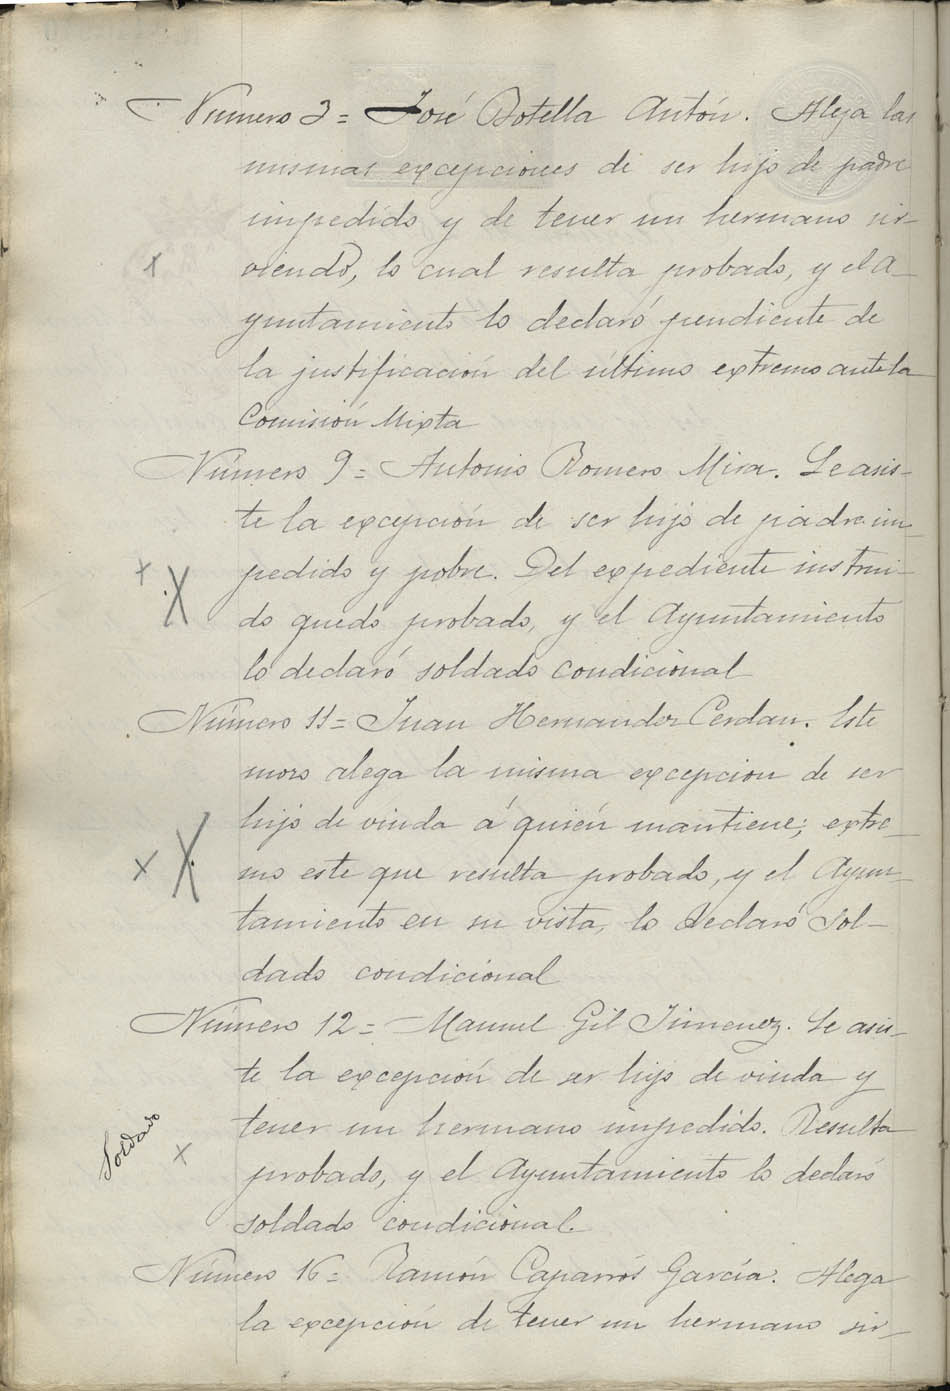 Número 3= José Botella Antón. Alega las
mismas excepciones de ser hijo de padre
impedido y de tener un hermano sir-
viendo, lo cual resulta probado, y el A-
yuntamiento lo declaró pendiente de
la justificación del último extremo ante la
Comisión Mixta
Número 9= Antonio Romero Mira. Le asis-
te la excepción de ser hijo de padre im-
pedido y pobre. Del expediente instrui-
do quedo probado, y el Ayuntamiento
lo declaró soldado condicional
Número 11= Juan Hernandez Cerdan. Este
mozo alega la misma excepcion de ser
hijo de viuda á quién mantiene; extre-
mo este que resulta probado, y el Ayun-
tamiento en su vista, lo declaró Sol-
dado condicional
Número 12= Manuel Gil Jimenez. Le asis-
te la excepción de ser hijo de viuda y
tener un hermano impedido. Resulta
Soldado
probado, y el Ayuntamiento lo declaró
soldado condicional.
Número 16= Ramón Caparrós García. Alega
la excepción de tener un hermano sir-